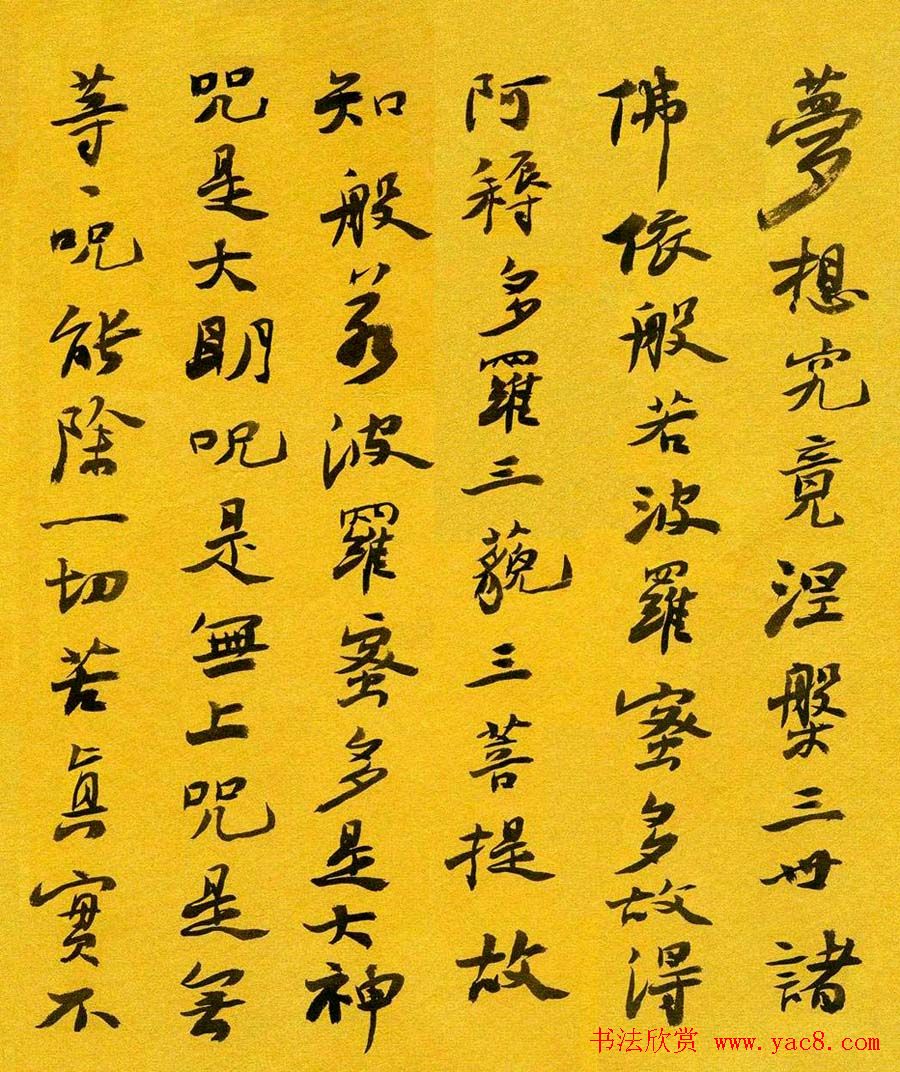 夢想究竟涅槃三世諸
佛依般若波羅蜜多故得
阿耨多羅三藐三菩提故
知般若波羅蜜多是大神
咒是大明咒是無上咒是無
等〻咒能除一切苦真實不
书法欣赏 www.yac8.com